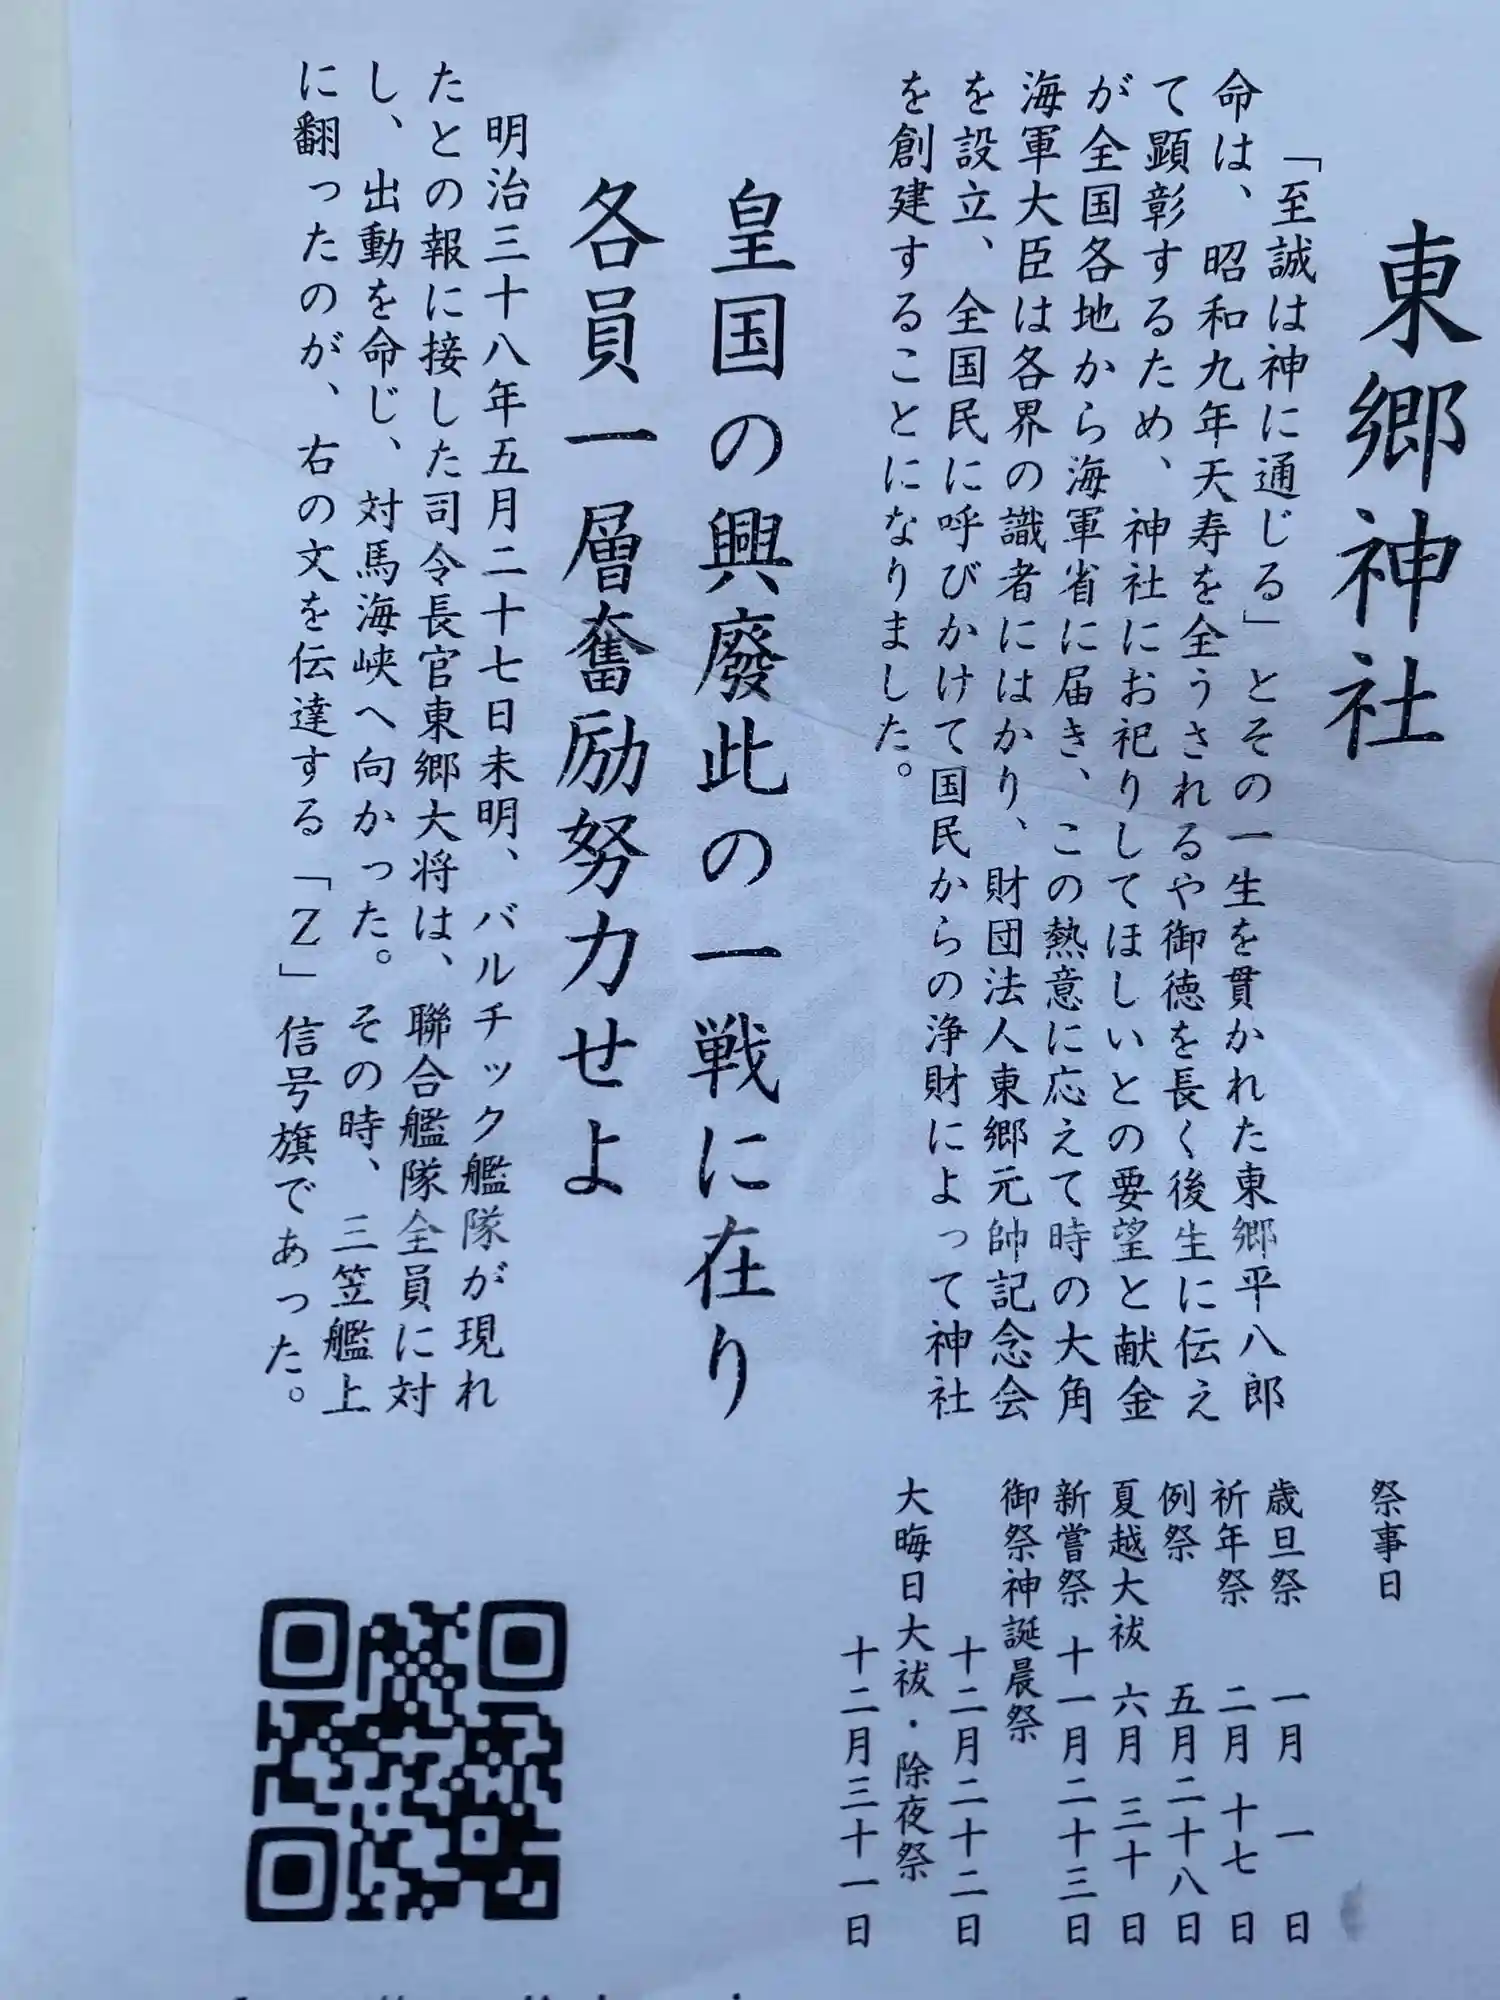 東郷神社
「至誠は神に通じる」とその一生を貫かれた東郷平八郎
命は、昭和九年天寿を全うされるや御徳を長く後生に伝え
て顕彰するため、神社にお祀りしてほしいとの要望と献金
が全国各地から海軍省に届き、この熱意に応えて時の大角
海軍大臣は各界の識者にはかり、財団法人東郷元帥記念会
を設立、全国民に呼びかけて国民からの浄財によって神社
を創建することになりました。
皇国の興廢此の一戦に在り
各員一層奮励努力せよ
明治三十八年五月二十七日未明、バルチック艦隊が現れ
たとの報に接した司令長官東郷大将は、聯合艦隊全員に対
し、出動を命じ、対馬海峡へ向かった。その時、三笠艦上
に翻ったのが、右の文を伝達する「Z」信号旗であった。
祭事日
歳旦祭 一月 一日
祈年祭 二月 十七日
例祭 五月二十八日
夏越大祓 六月 三十日
新嘗祭 十一月二十三日
御祭神誕晨祭
十二月二十二日
大晦日大祓・除夜祭
十二月三十一日